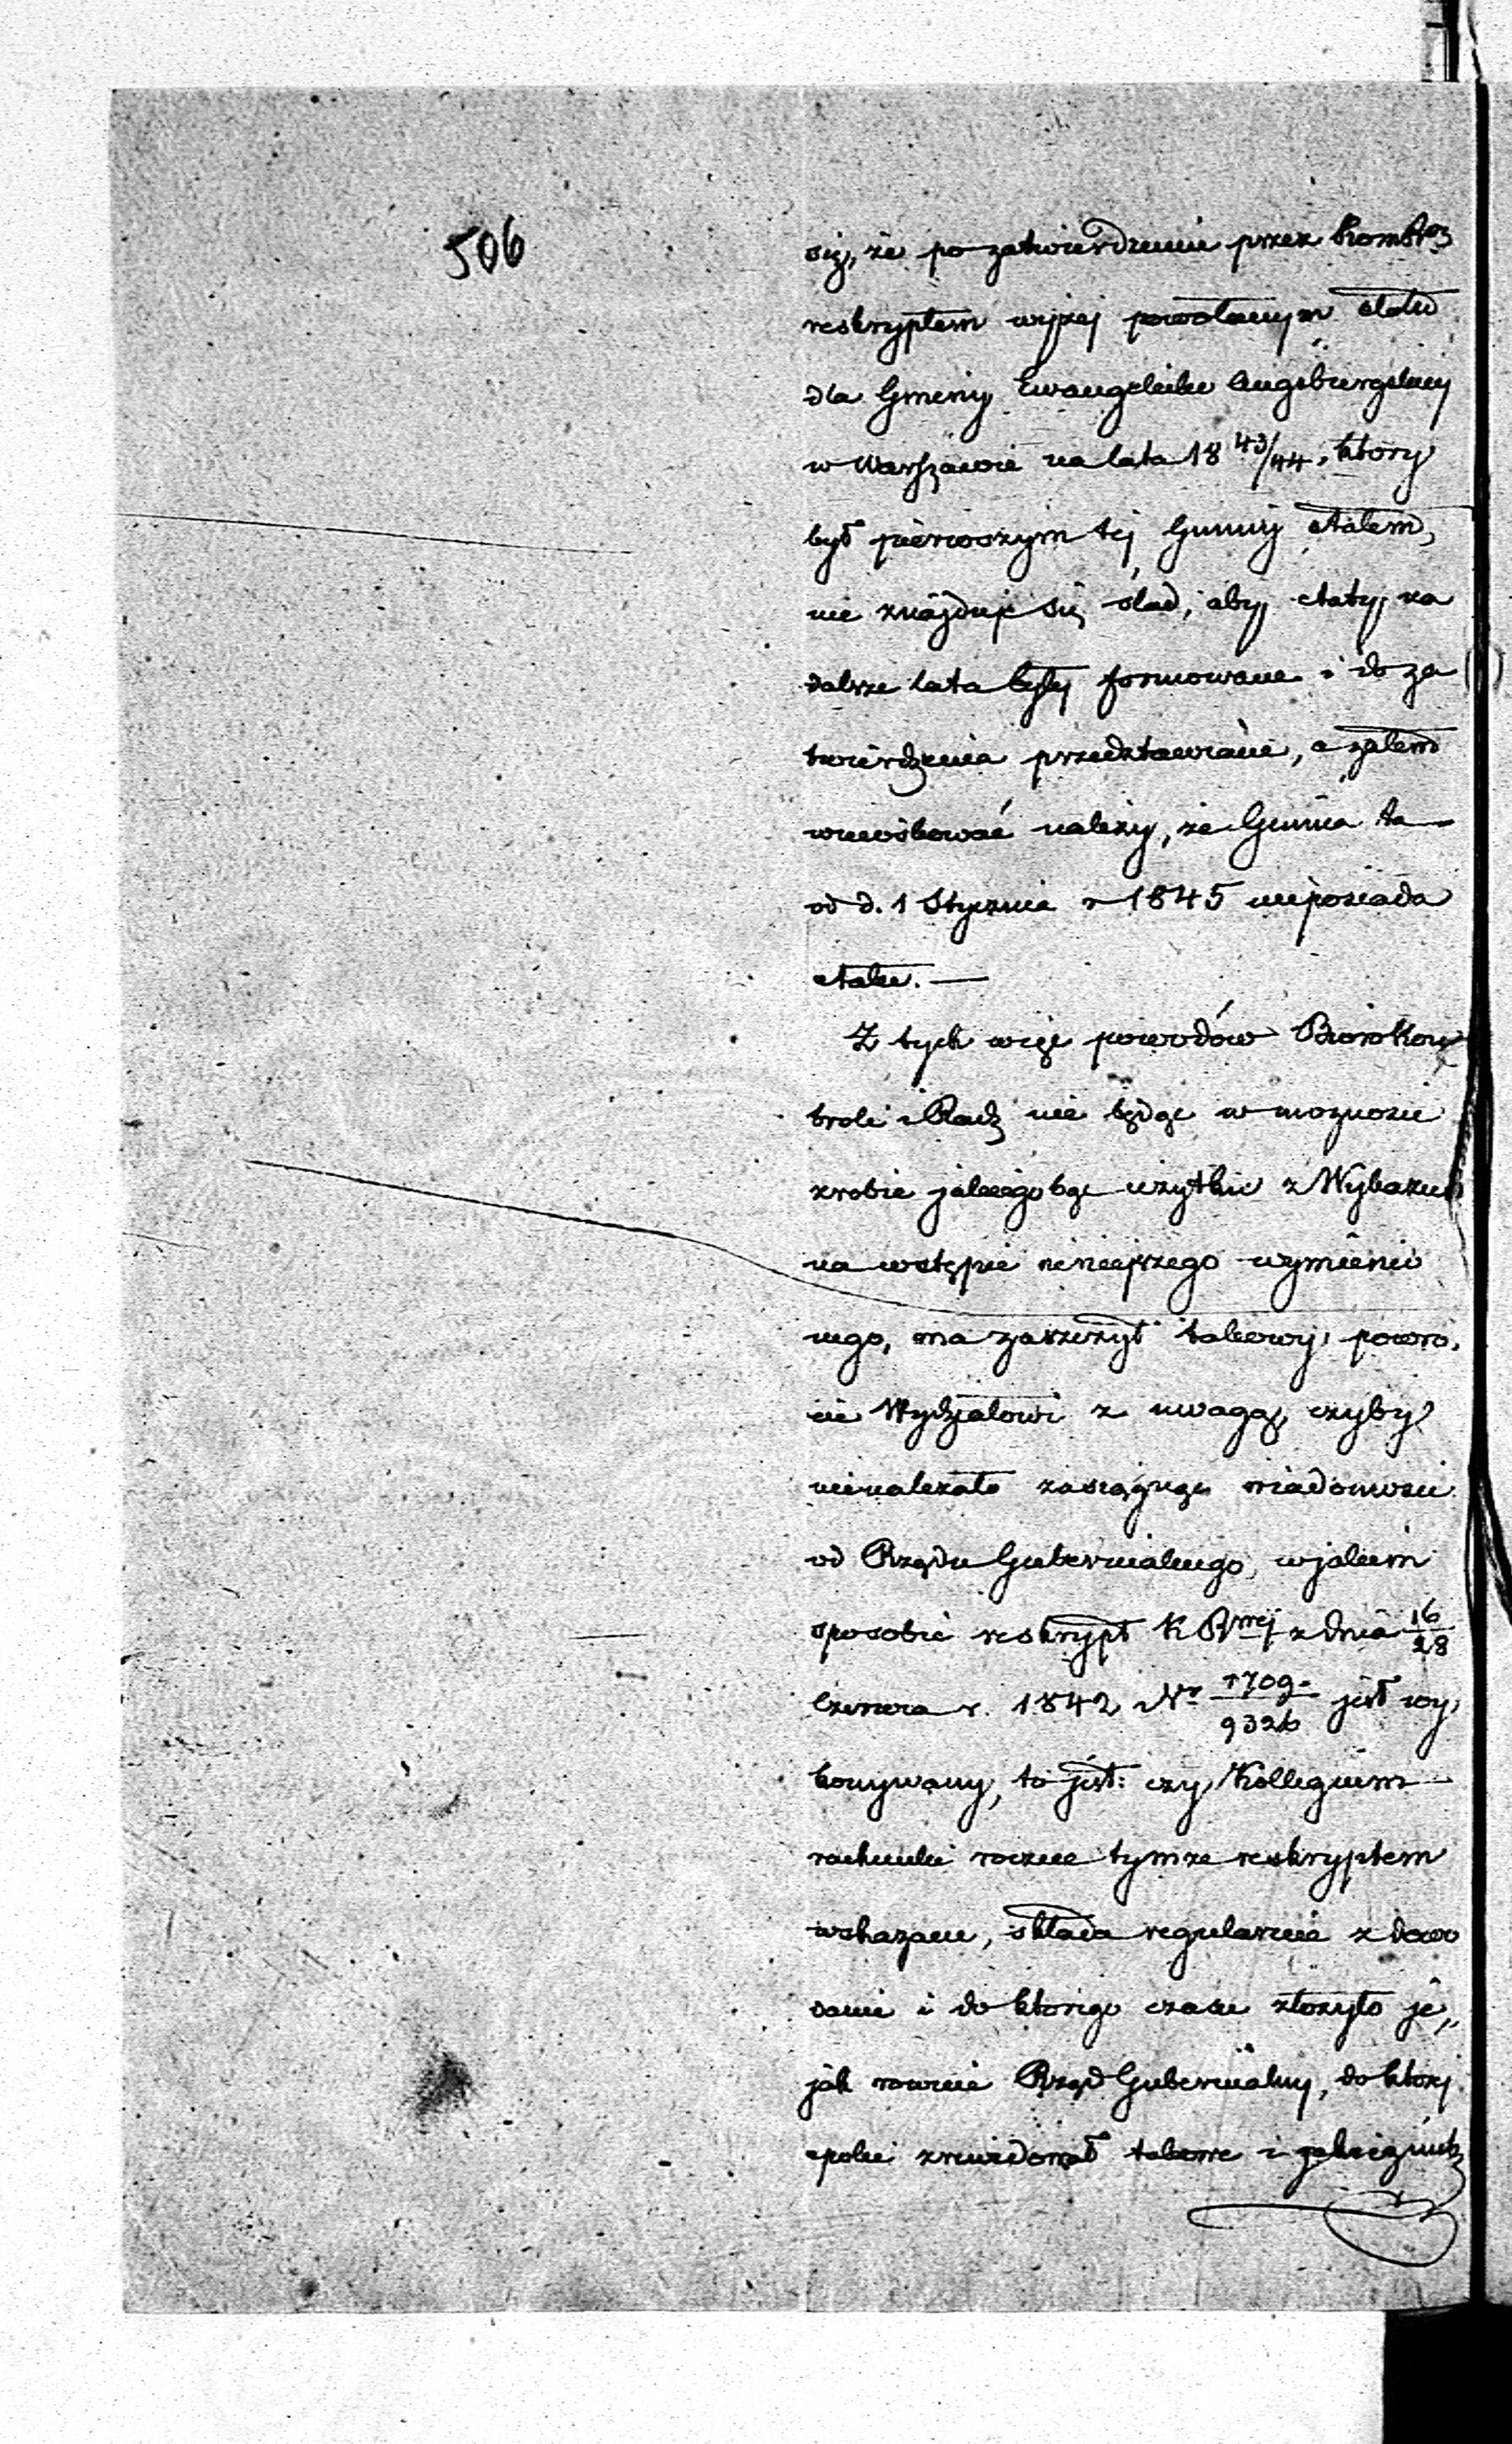 506
się, że po zatwierdzeniu przez
reskryptem wyżej powołanym etatu
dla Gminy Ewangelicko Augsburgskiej
w Warszawie na lata 18 43/44, który
był pierwszym tej Gminy etatem,
nie znajduje się ślad, aby etaty na
dalsze lata były formowane i do za
twierdzenia przedstawiane, a zatem
wnioskować należy, że Gmina ta
od d. 1 Stycznia r 1845 nieposiada
etatu. —
Z tych więc powodów Bióro Kon
troli i Rach nie będąc w możności
zrobić jakiegobądź użytku z Wykazu
na wstępie niniejszego wymienio
nego, ma zaszczyt takowy powró,
cić Wydziałowi z uwagą, czyby
nienależało zasięgnąć wiadomości
od Rządu Gubernialnego, w jakim
sposobie reskrypt K R z dnia 16/28
Czerwca r. 1842 Nr 1709/9326 jest wy,
konywany, to jest: czy Kollegium
rachunki roczne tymże reskryptem
wskazane, składa regularnie z dowo
dami i do którego czasu złożyło je,
jak równie Rząd Gubernialny, do której
epoki zrewidował takowe i